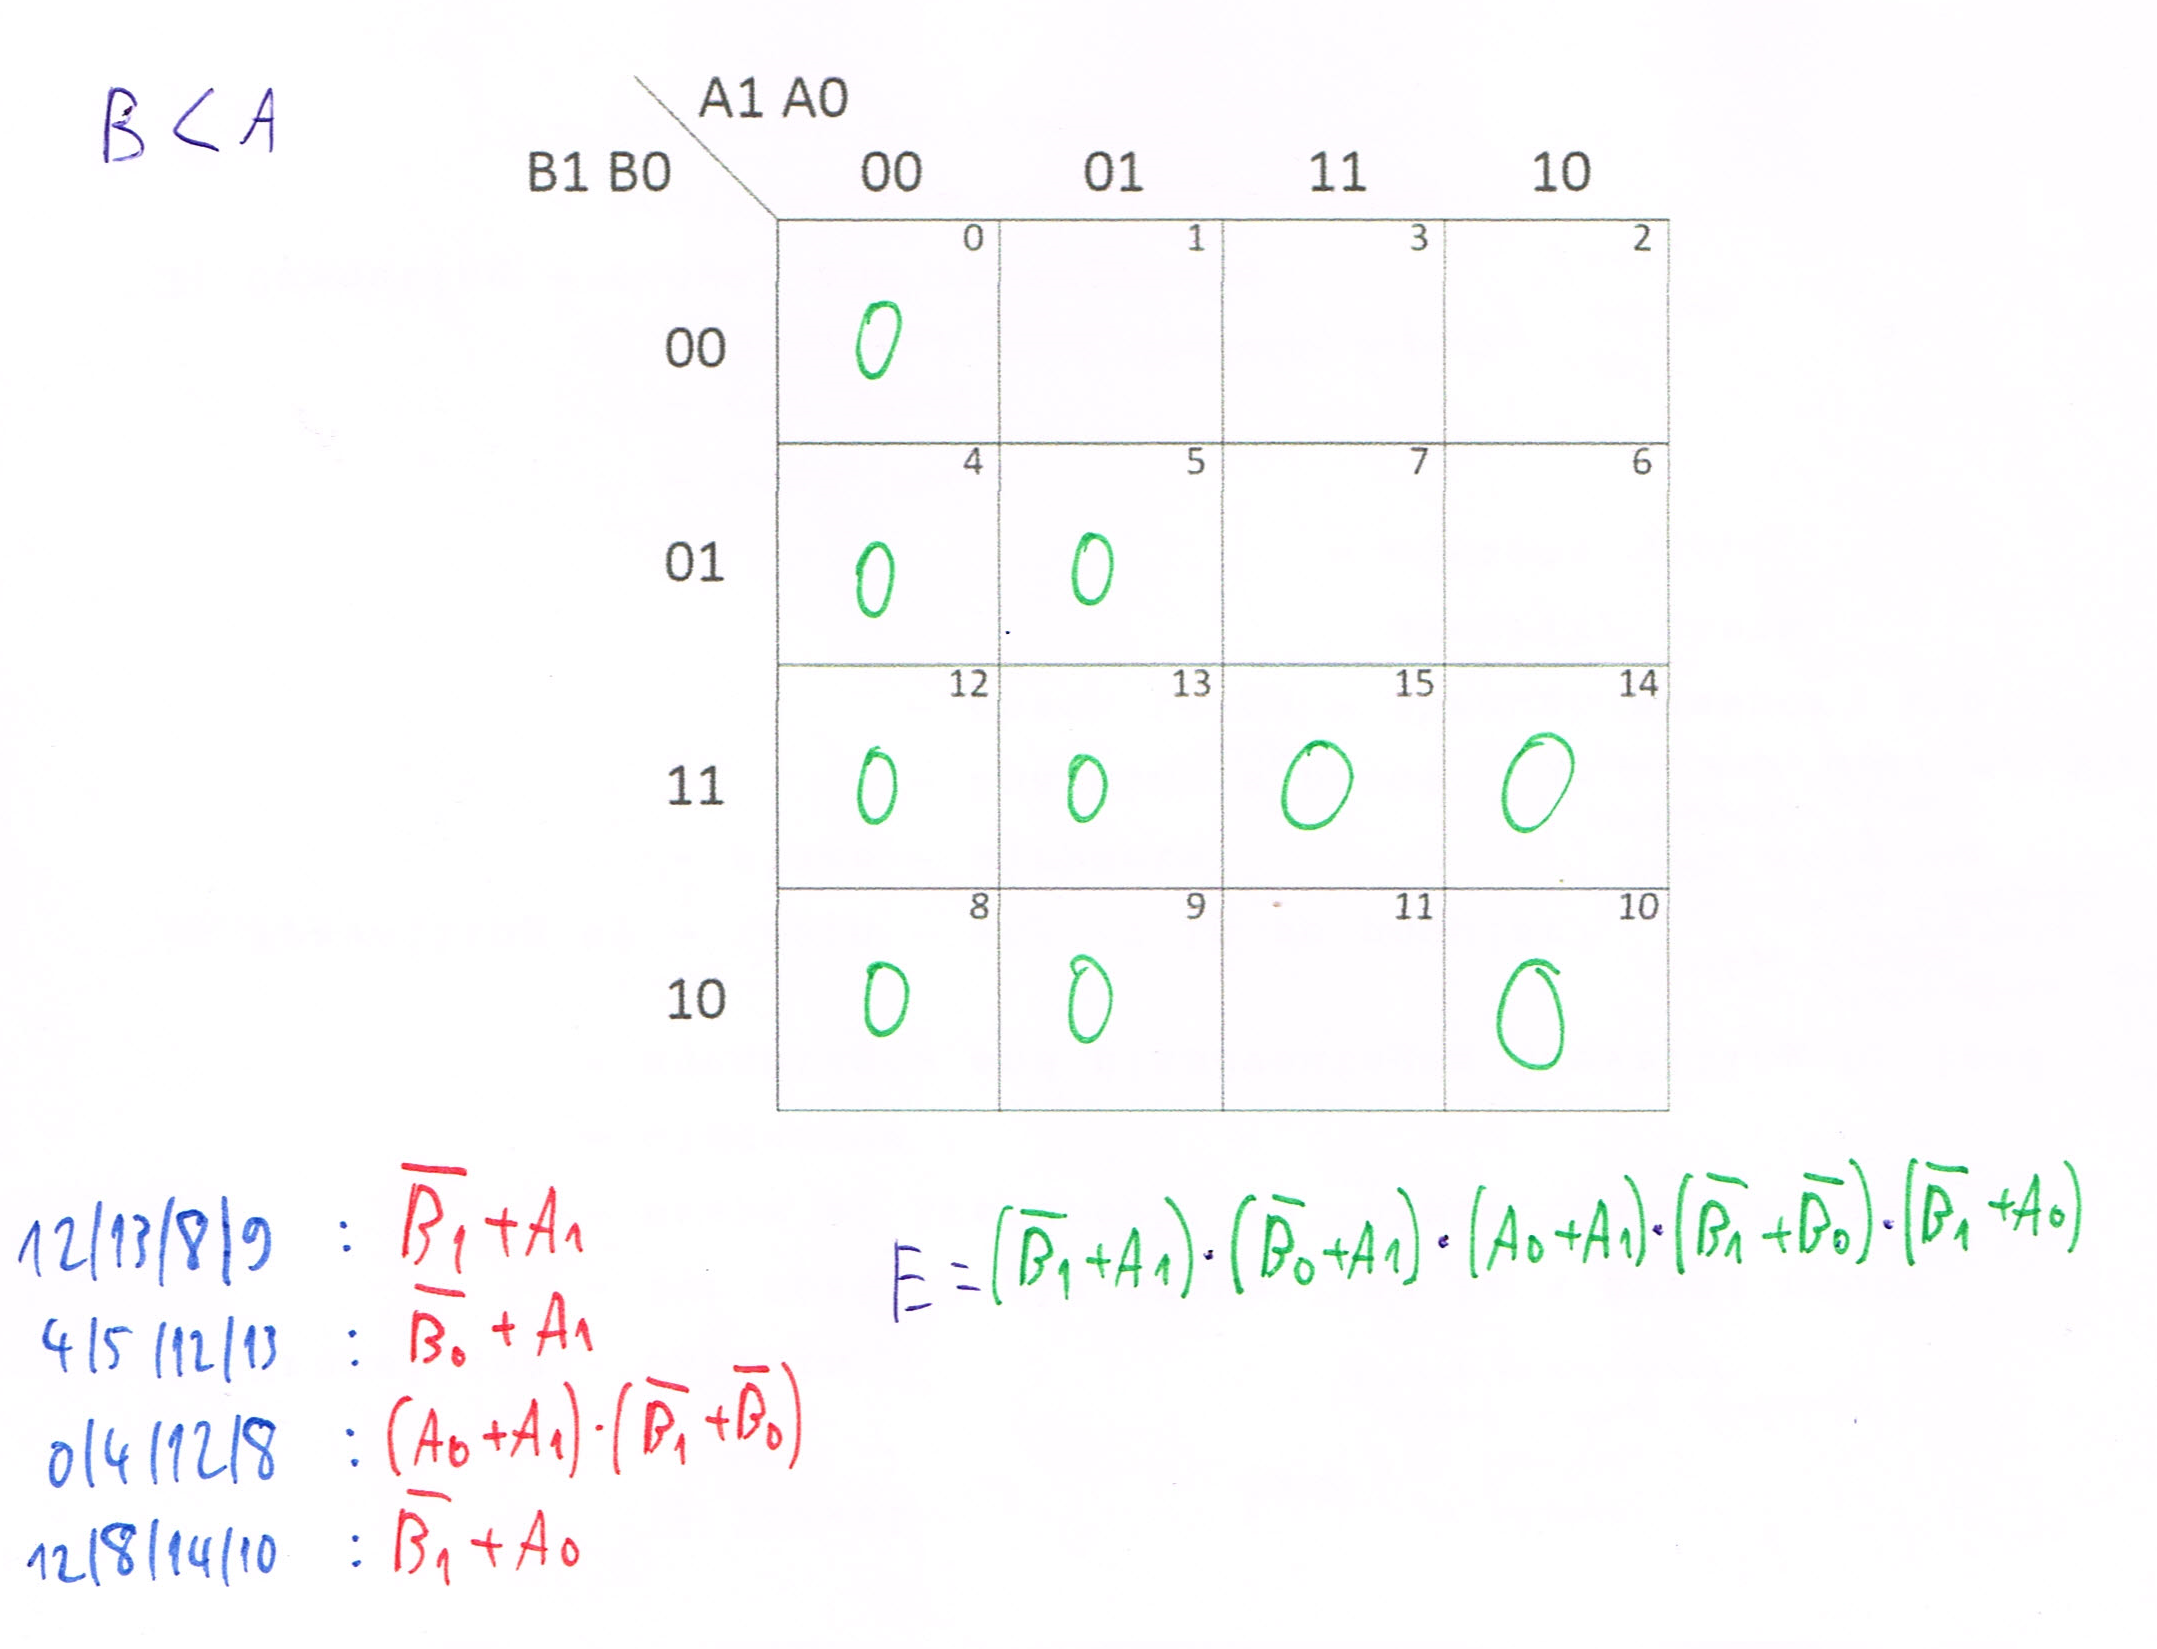 B < A
A1 A0
B1 B0 00 01 11 10
0 1 3 2
00 0
4 5 7 6
01 0 0
12 13 15 14
11 0 0 0 0
8 9 11 10
10 0 0 0
12/13/8/9 : B̅₁ + A₁
4/5/12/13 : B̅₀ + A₁
0/4/12/8 : (A₀ + A₁) · (B̅₁ + B̅₀)
12/8/14/10 : B̅₁ + A₀
E = (B̅₁ + A₁) · (B̅₀ + A₁) · (A₀ + A₁) · (B̅₁ + B̅₀) · (B̅₁ + A₀)